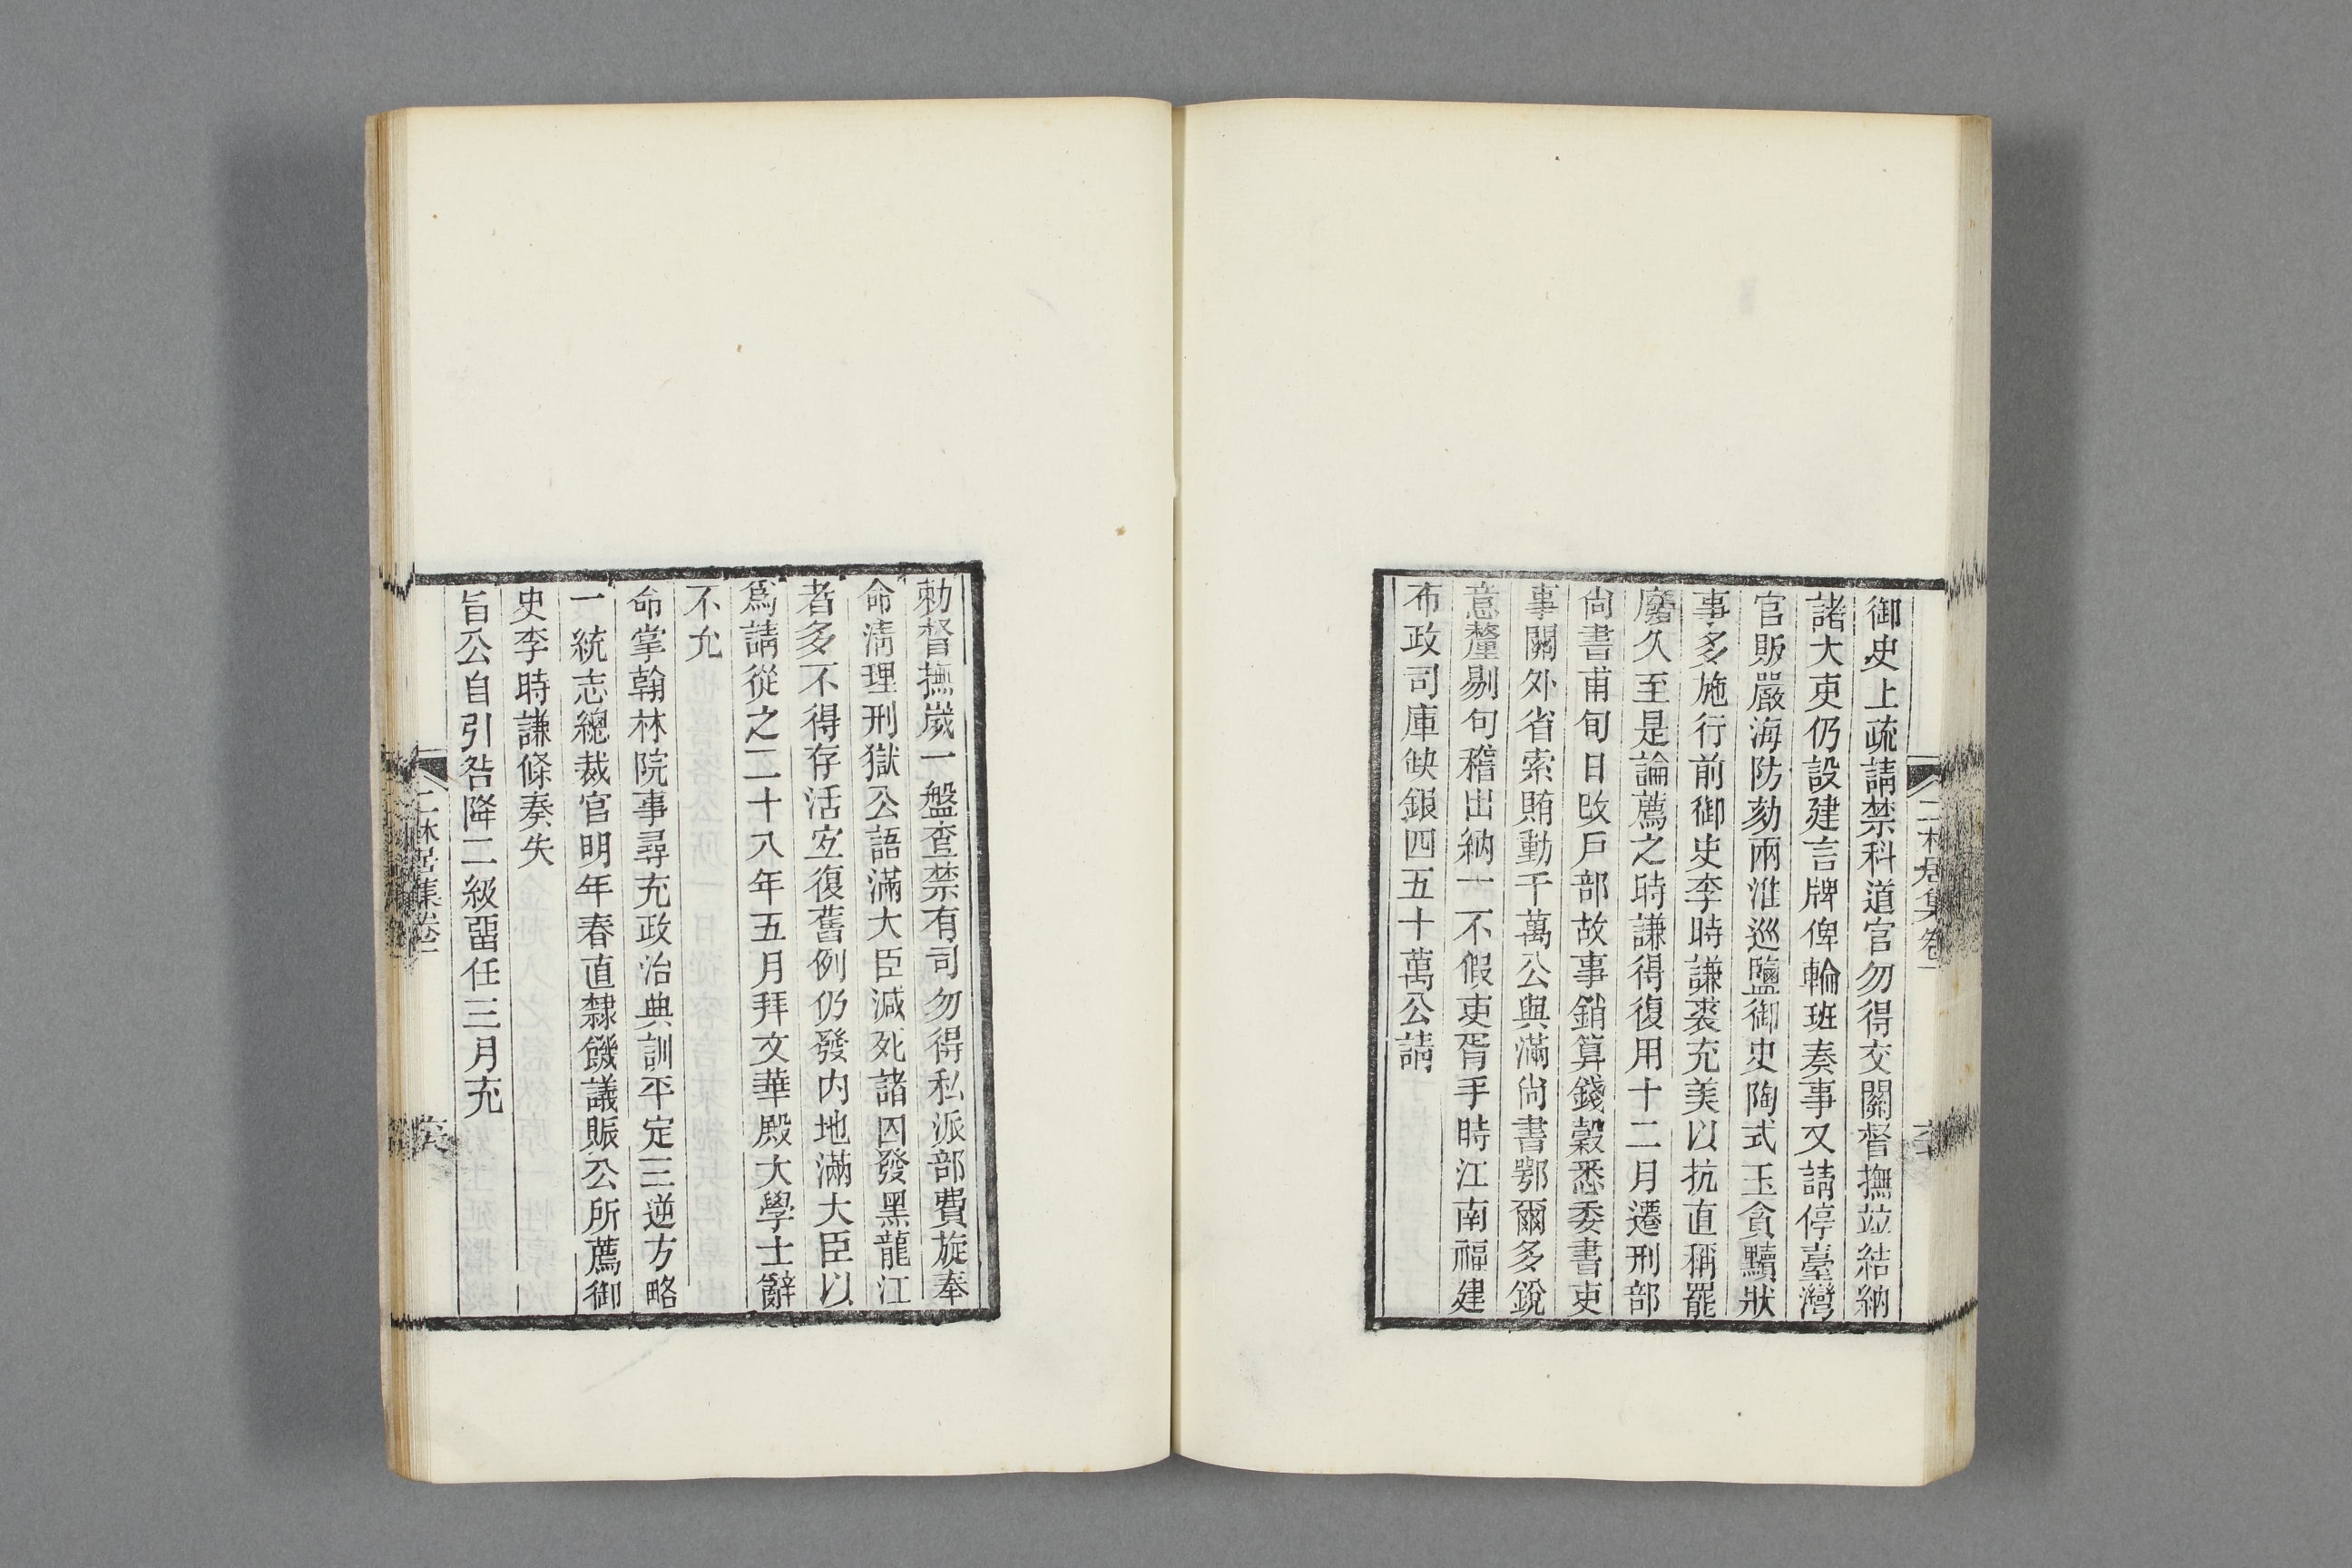 御史上疏請禁科道官勿得交關督撫竝結納
諸大吏仍設建言牌俾輪班奏事又請停臺灣
官販嚴海防劾兩淮巡鹽御史陶式玉貪黷狀
事多施行前御史李時謙裘充美以抗直稱罷
廢久至是論薦之時謙得復用十二月遷刑部
尚書甫旬日改戶部故事銷算錢穀悉委書吏
事關外省索賄動千萬公與滿尚書鄂爾多銳
意釐剔句稽出納一不假吏胥手時江南福建
布政司庫缺銀四五十萬公請
勅督撫歲一盤查禁有司勿得私派部費旋奉
命淸理刑獄公語滿大臣減死諸囚發黑龍江
者多不得存活宜復舊例仍發內地滿大臣以
爲請從之二十八年五月拜文華殿大學士辭
不允
命掌翰林院事尋充政治典訓平定三逆方略
一統志總裁官明年春直隸饑議賑公所薦御
史李時謙條奏失
旨公自引咎降二級留任三月充
二林居集卷